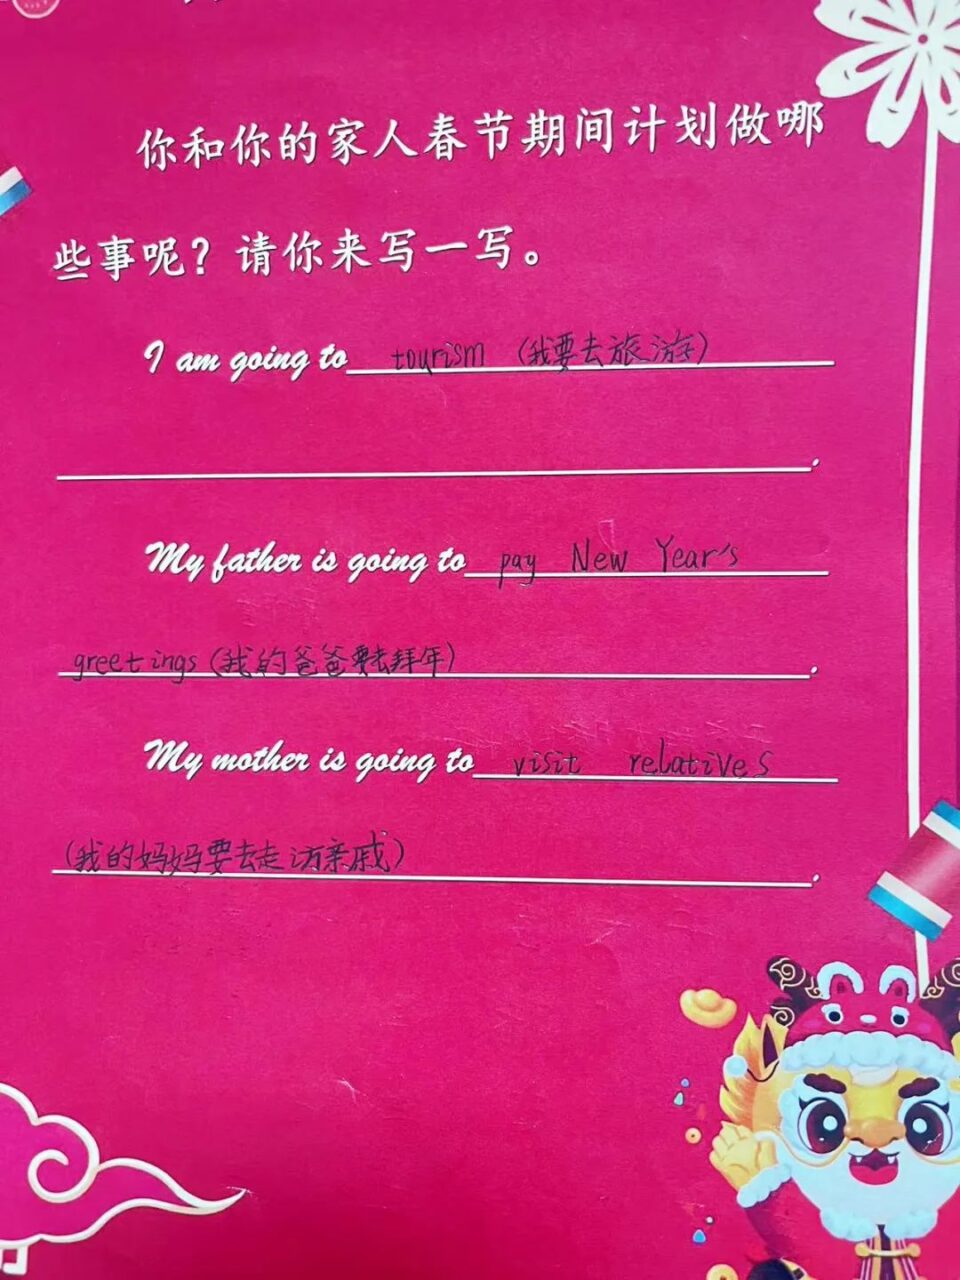 你和你的家人春节期间计划做哪
些事呢？请你来写一写。
I am going to tourism (我要去旅游)
.
My father is going to pay New Year's
greetings (我的爸爸要去拜年).
My mother is going to visit relatives
(我的妈妈要去走访亲戚).